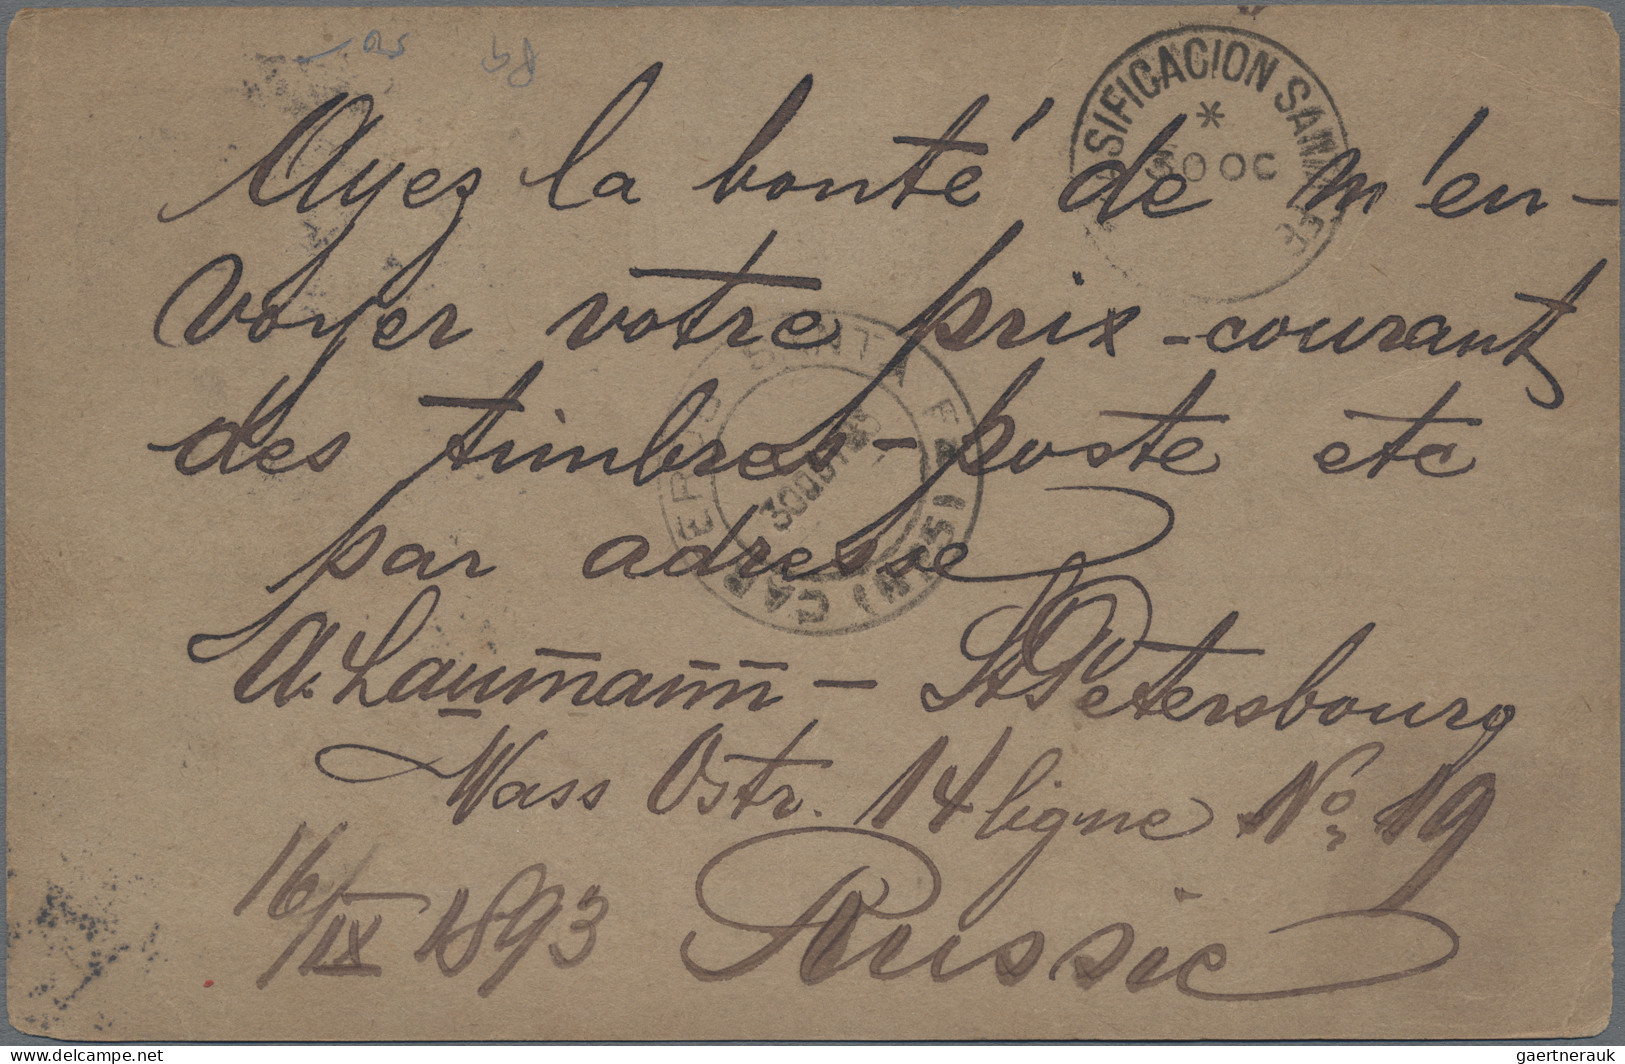 Ayez la bonté de m'en-
voyer votre prix-courant
des timbres-poste etc
par adresse
A. Laumann - St Petersbourg
Wass Ostr. 14 ligne No. 19
16/IX 1893 Russie
SIFICACION SAN
30 OC
SANTA FE
CAR
delcampe.net
gaertnerauk